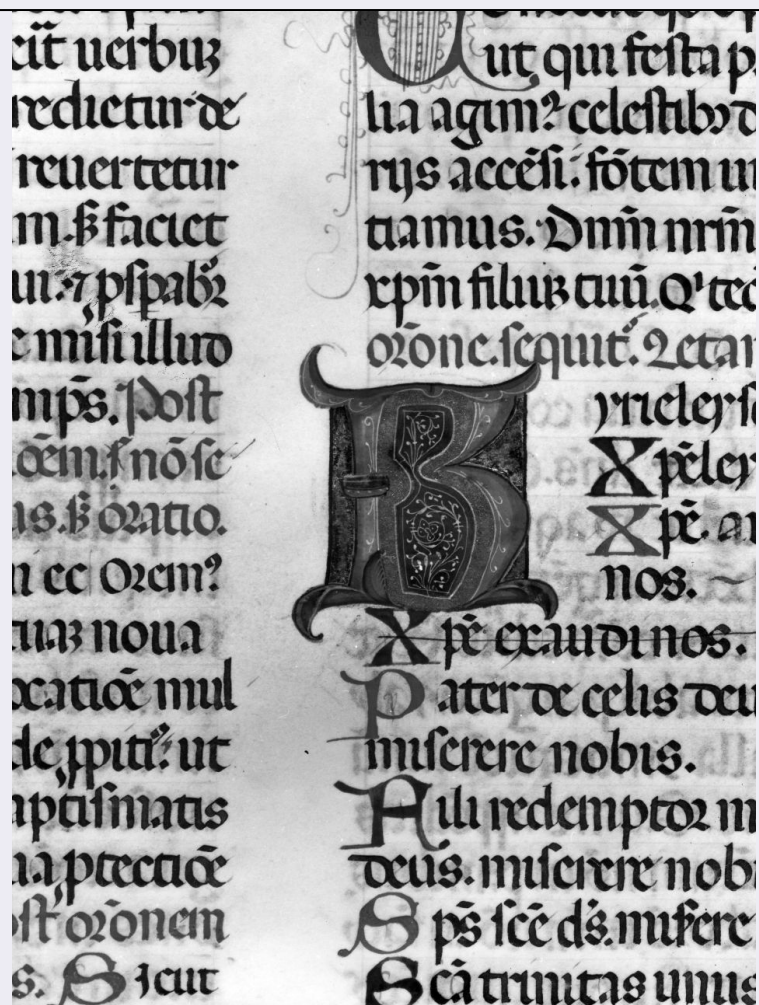 eū uerbuʒ
redicetur de
reuertetur
m. ẜ faciet
ui. ⁊ ꝓſꝑabr̄
e miſi illud
mp̄s. Post
ōem. ſ nō ſe
as. ẜ oratio.
ec Orem?
tuaʒ noua
ocatiōe mul
de ut
aptiſmatis
ua ꝓtectiōe
oſt orōnem
s. Sicut
ut qui feſta p
lia agim? celeſtibꝫ d
rijs accēſi: fōtem ui
tiamus. Dn̄m nrm̄
xp̄m filiuʒ tuū. Qͥ tec
orōne. ſequit᷑. Letan
K yriel eyſ
Xp̄e ley
Xp̄e. au
nos.
Xp̄e exaudi nos.
Pater de celis deu
miſerere nobis.
Fili redemptor m
deus. miſerere nob
Sp̄s ſcē d̄s. miſere
Sc̄a trinitas unus